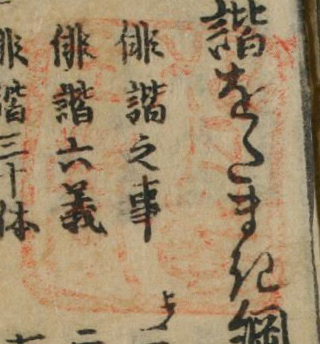 諧をたまき綱
俳諧之事
俳諧六義
俳諧三十体